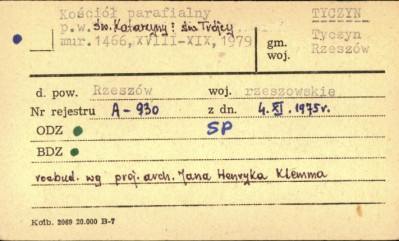 Kościół parafialny TYCZYN
p.w. św. Katarzyny i św. Trójcy
mur. 1466, XVIII-XIX, 1979
gm. Tyczyn
woj. Rzeszów
d. pow. Rzeszów woj. rzeszowskie
Nr rejestru A-930 z dn. 4.XI.1975r.
ODZ SP
BDZ
rozbud. wg proj. arch. Jana Henryka Klemma
Kolb. 2069 20.000 B-7